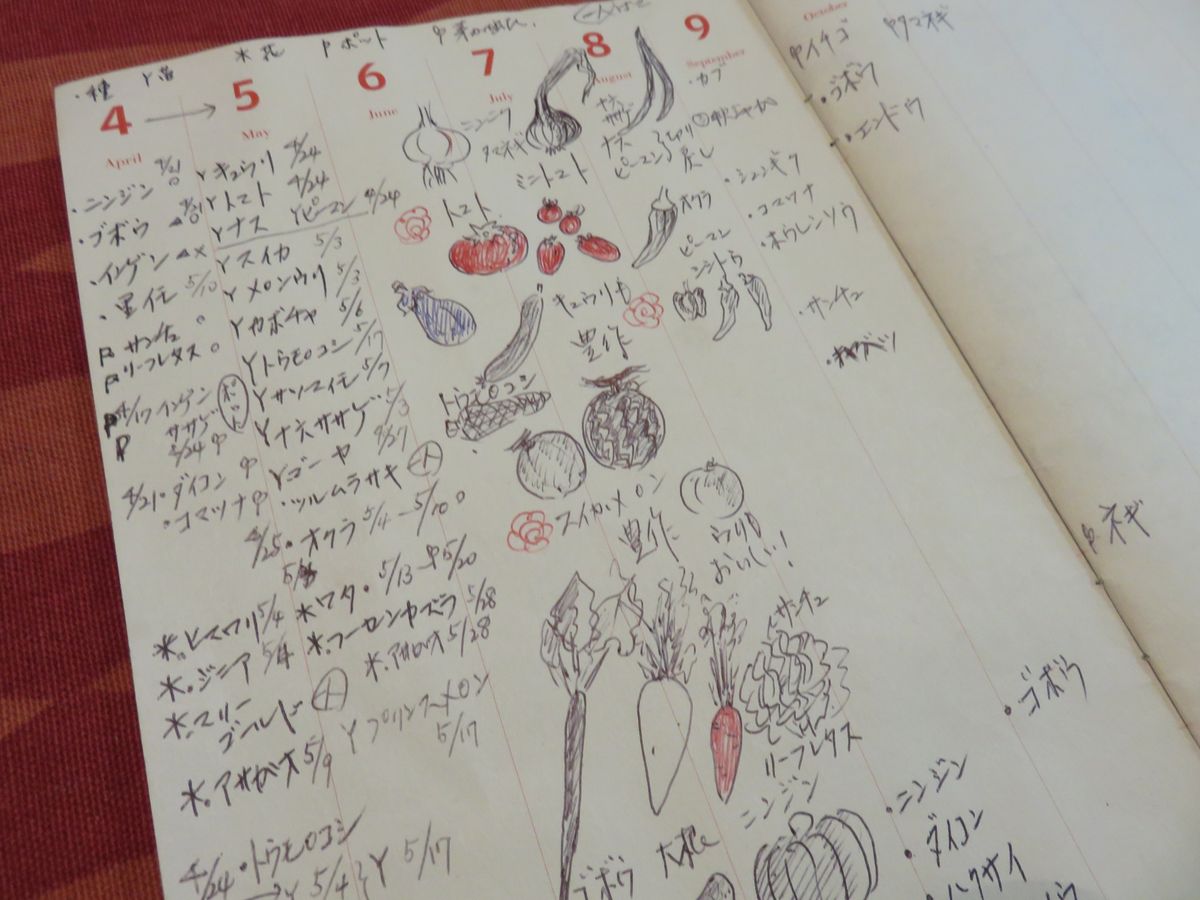 ・種 Y苗 米花 Pポット
4 → 5 6 7 8 9
April May June July August September October
・ニンジン 4/21
・ゴボウ
・インゲン △×
・里イモ 5/10
P サンチュ ○
P リーフレタス ○
P 4/17 インゲン
P ササゲ
ポット
4/21・ダイコン
・コマツナ
Yキュウリ 4/24
Yトマト 4/24
Yナス Yピーマン 4/24
Yスイカ 5/3
Yメロンウリ 5/3
Yカボチャ 5/6
Yトウモロコシ 5/17
Yサツマイモ 5/7
Y十六ササゲ 5/3
Yゴーヤ 4/27
・ツルムラサキ
4/25・オクラ 5/4 5/10
米・ワタ・5/13 5/20
米・フーセンカズラ 5/28
米・アサガオ 5/28
米・ヒマワリ 5/4
米・ジニア 5/4
米・マリー
ゴールド
米・アサガオ 5/9
Yプリンスメロン
5/17
4/24・トウモロコシ
Y 5/4 Y 5/17
ニンニク
タマネギ
ミニトマト
トマト
ナス
ピーマン
戻し
オクラ
ピーマン
シシトウ
キュウリも
豊作
トウモロコシ
スイカメロン
豊作
ウリも
おいしい!
サンチュ
リーフレタス
ニンジン
大根
ゴボウ
・カブ
・シュンギク
・コマツナ
・ホウレンソウ
・サンチュ
・キャベツ
・ニンジン
・ダイコン
・ハクサイ
イチゴ
タマネギ
・ゴボウ
・エンドウ
ネギ
・ゴボウ